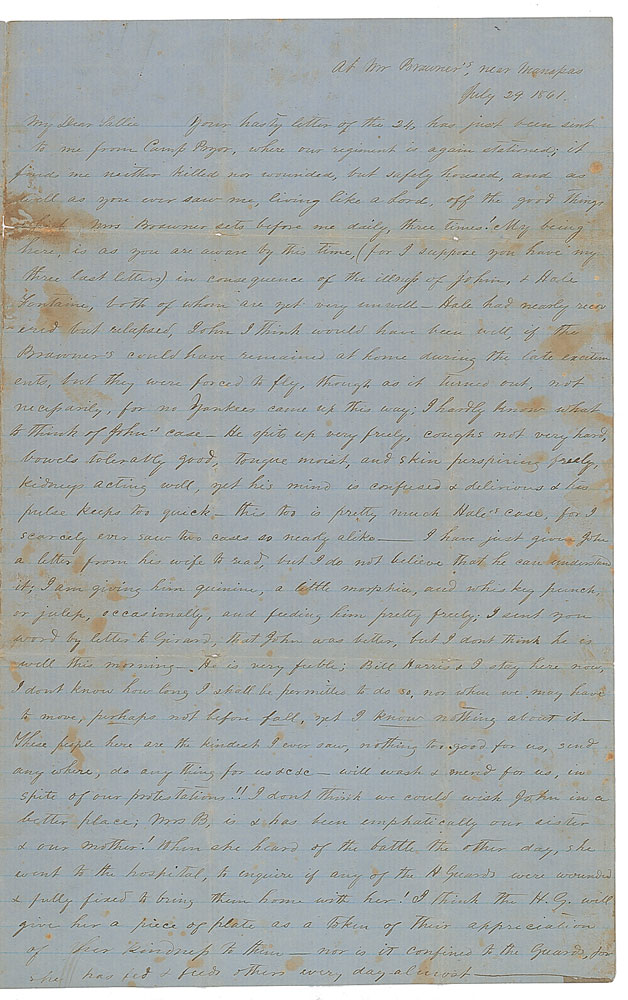 At Mr Brawner's, near Manassas
July 29 1861.
My Dear Sallie Your hasty letter of the 24, has just been sent
to me from Camp Pryor, where our regiment is again stationed; it
finds me neither killed nor wounded, but safely housed, and as
well as you ever saw me, living like a Lord, off the good things
which Mrs Brawner sets before me daily, three times! My being
here, is as you are aware by this time, (for I suppose you have my
three last letters) in consequence of the illness of John, & Hale
Fontaine, both of whom are yet very unwell — Hale had nearly recov
ered but relapsed, John I think would have been well, if the
Brawner's could have remained at home during the late excitem
ents, but they were forced to fly, though as it turned out, not
necessarily, for no Yankees came up this way; I hardly know what
to think of John's case — He spits up very freely, coughs not very hard,
bowels tolerably good, tongue moist, and skin perspiring freely,
kidneys acting well, yet his mind is confused & delirious & his
pulse keeps too quick — this too is pretty much Hale's case, for I
scarcely ever saw two cases so nearly alike — I have just given John
a letter from his wife to read, but I do not believe that he can understand
it; I am giving him quinine, a little morphine, and whiskey punch,
or julep, occasionally, and feeding him pretty freely; I sent you
word by letter to Girard, that John was better, but I dont think he is
well this morning — He is very feeble; Bill Harris & I stay here now,
I dont know how long I shall be permitted to do so, nor when we may have
to move, perhaps not before fall, yet I know nothing about it —
These people here are the kindest I ever saw, nothing too good for us, send
any where, do any thing for us &c &c — will wash & mend for us, in
spite of our protestations!! I dont think we could wish John in a
better place; Mrs B, is & has been emphatically our sister
& our mother! When she heard of the battle the other day, she
went to the hospital, to enquire if any of the H Guards were wounded
& fully fixed to bring them home with her! I think the H. G. will
give her a piece of plate as a token of their appreciation
of her kindness to them — nor is it confined to the Guards, for
she has fed & feeds others every day almost —